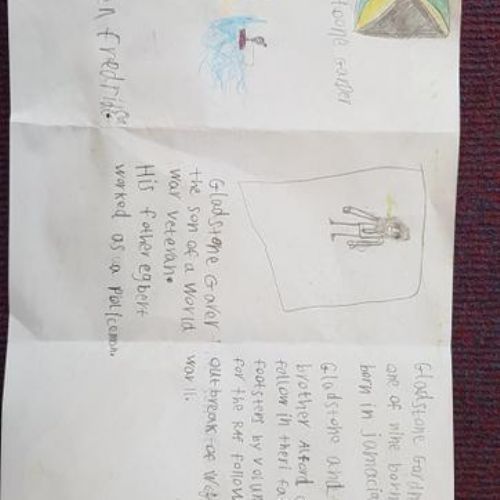 Gladstone Gaver
the son of a world
war veteran.
His father egbert
worked as a policman.
Gladstone Gard
one of nine born
born in jamaci
Gladstone and
brother Alford
follow in theri fa
footsters by volun
for the RAF follow
outbreak of
war ii.